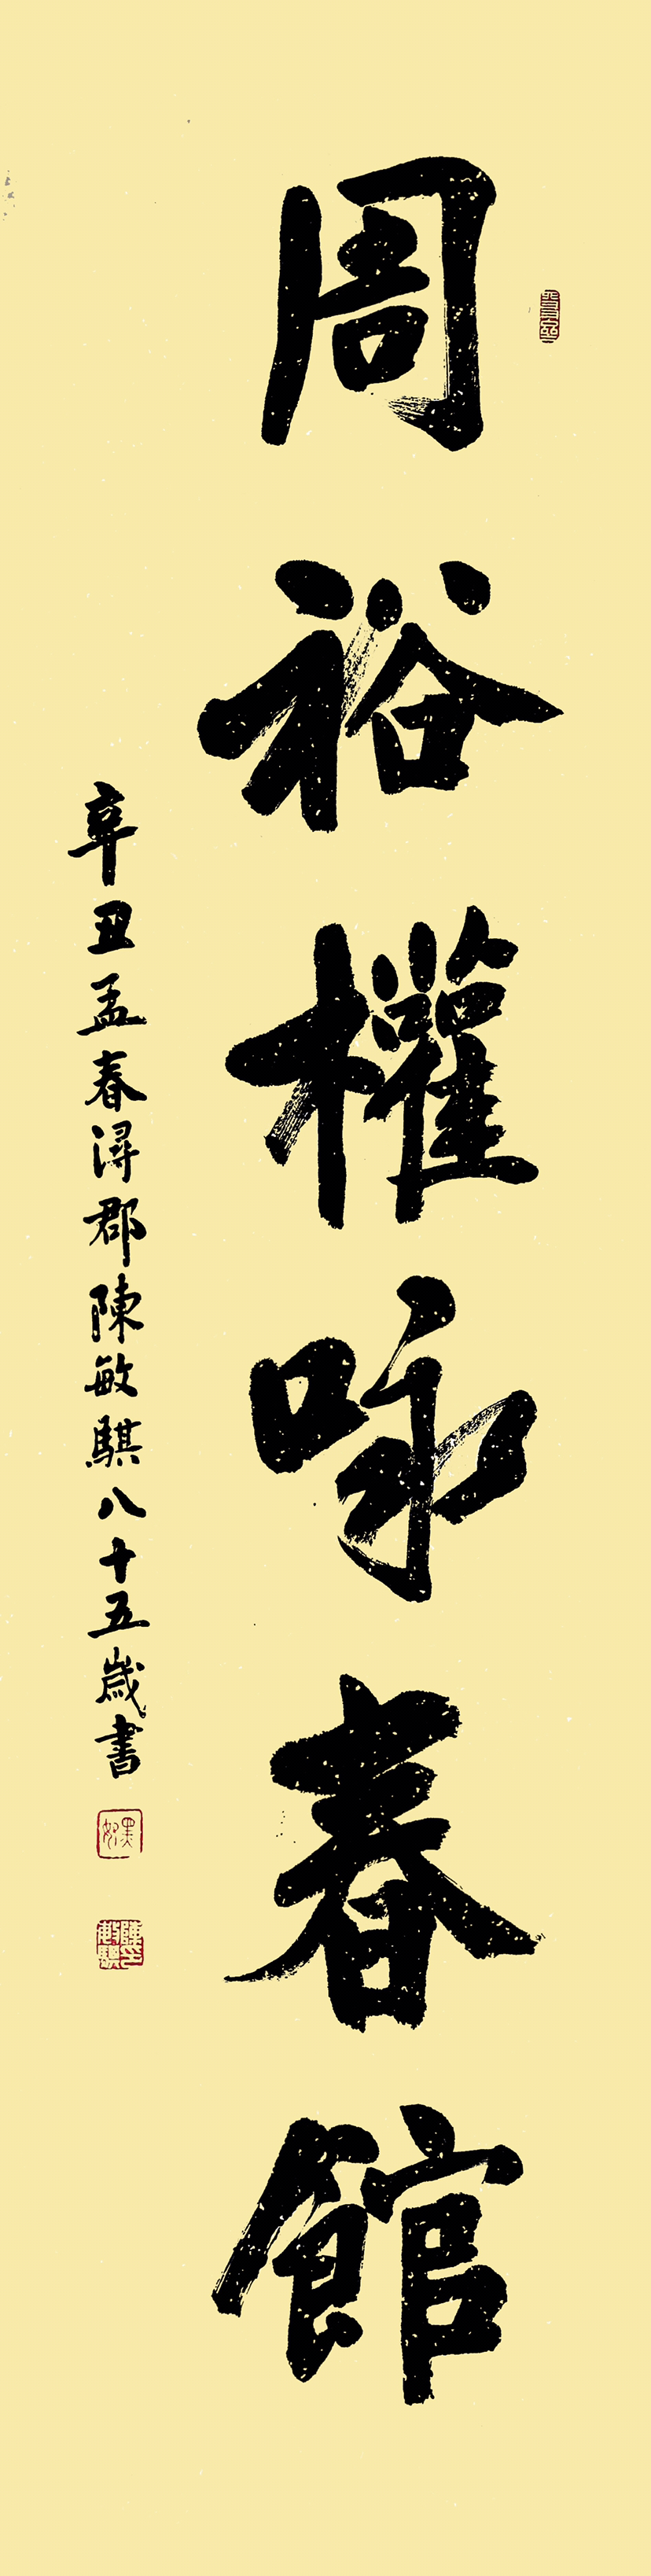 周裕權咏春館
辛丑孟春潯郡陳敏騏八十五歲書
陳敏騏